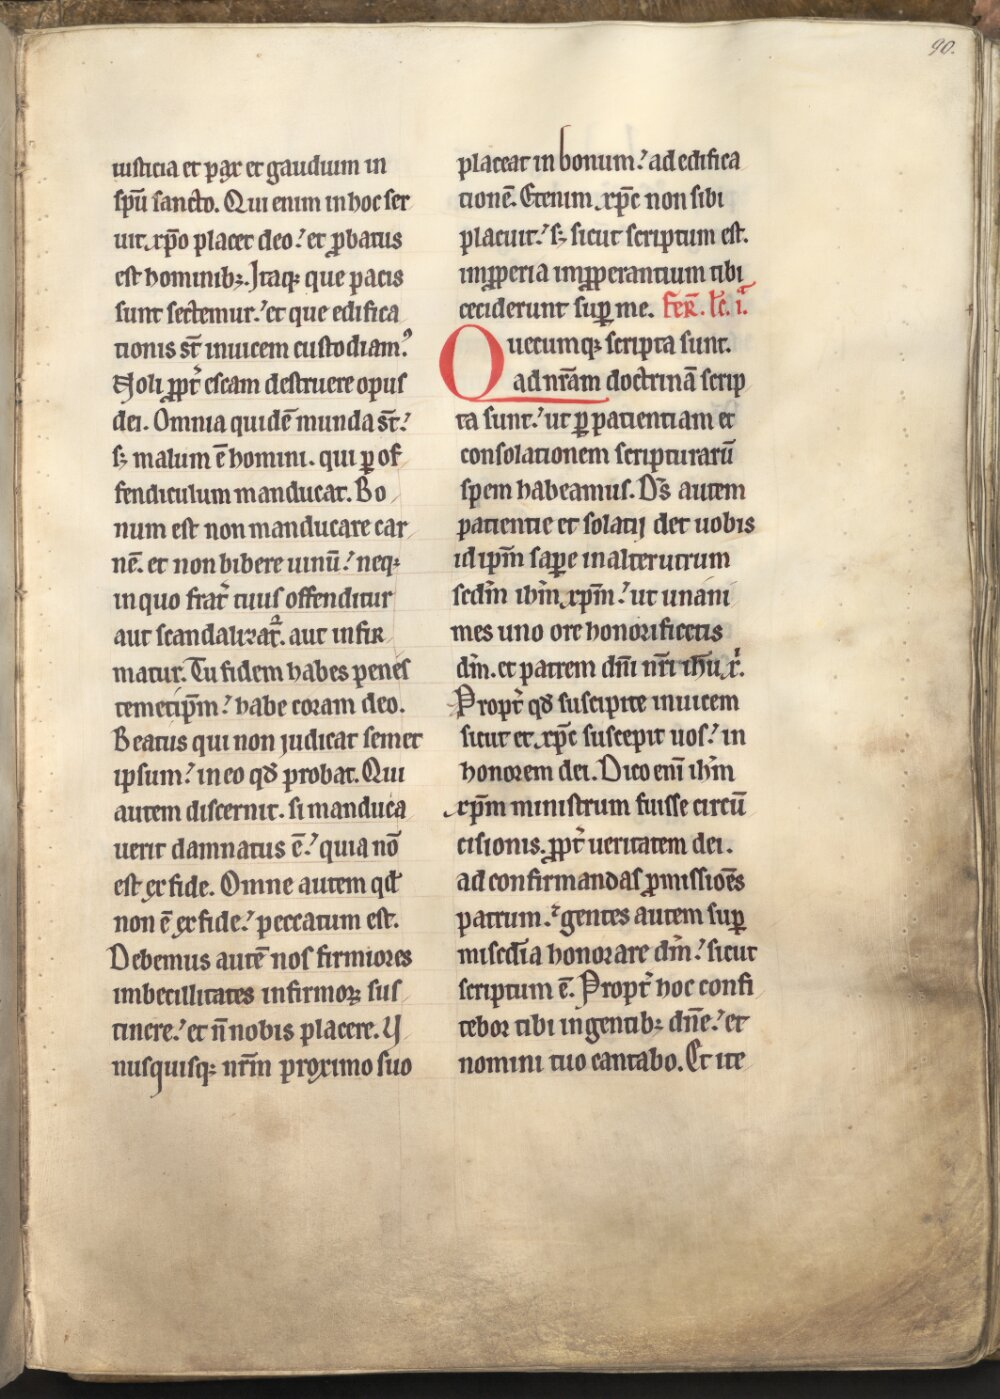 90.
iusticia et pax et gaudium in
spū sancto. Qui enim in hoc ser
uit xp̄o placet deo: et ꝓbatus
est hominibꝫ. Itaqꝫ que pacis
sunt sectemur: et que edifica
tionis st̄ inuicem custodiamꝰ
Noli ꝓpt̄ escam destruere opus
dei. Omnia quidē munda st̄:
sꝫ malum ē homini. qui ꝑ of
fendiculum manducat. Bo
num est non manducare car
nē. et non bibere uinū: neqꝫ
in quo frat̄ tuus offenditur
aut scandalizat̄. aut infir
matur. Tu fidem habes penes
temetip̄m: habe coram deo.
Beatus qui non judicat semet
ipsum: in eo qd̄ probat. Qui
autem discernit. si manduca
uerit damnatus ē: quia nō
est ex fide. Omne autem qd̄
non ē ex fide: peccatum est.
Debemus autē nos firmiores
imbecillitates infirmoꝝ sus
tinere: et n̄ nobis placere. U
nusquisqꝫ nr̄m proximo suo
placeat in bonum: ad edifica
tionē. Etenim xp̄c non sibi
placuit: sꝫ sicut scriptum est.
imꝓperia imꝓperantium tibi
ceciderunt suꝑ me. Fer̄. lc̄. i.
Quecumqꝫ scripta sunt.
ad nr̄am doctrinā scrip
ta sunt: ut ꝑ patientiam et
consolationem scripturarū
spem habeamus. Ds̄ autem
patientie et solatij det uobis
idip̄m saꝑe in alterutrum
sedm̄ ih̄m xp̄m: ut unani
mes uno ore honorificetis
dm̄. et patrem dn̄i nr̄i ih̄u x̄.
Propt̄ qd̄ suscipite inuicem
sicut et xp̄c suscepit uos: in
honorem dei. Dico eni̅ ih̄m
xp̄m ministrum fuisse circū
cisionis. ꝓpt̄ ueritatem dei.
ad confirmandas ꝓmissiōes
patrum. gentes autem suꝑ
misedi̅a honorare dm̄: sicut
scriptum ē. Propt̄ hoc confi
tebor tibi in gentibꝫ dn̄e: et
nomini tuo cantabo. Et ite